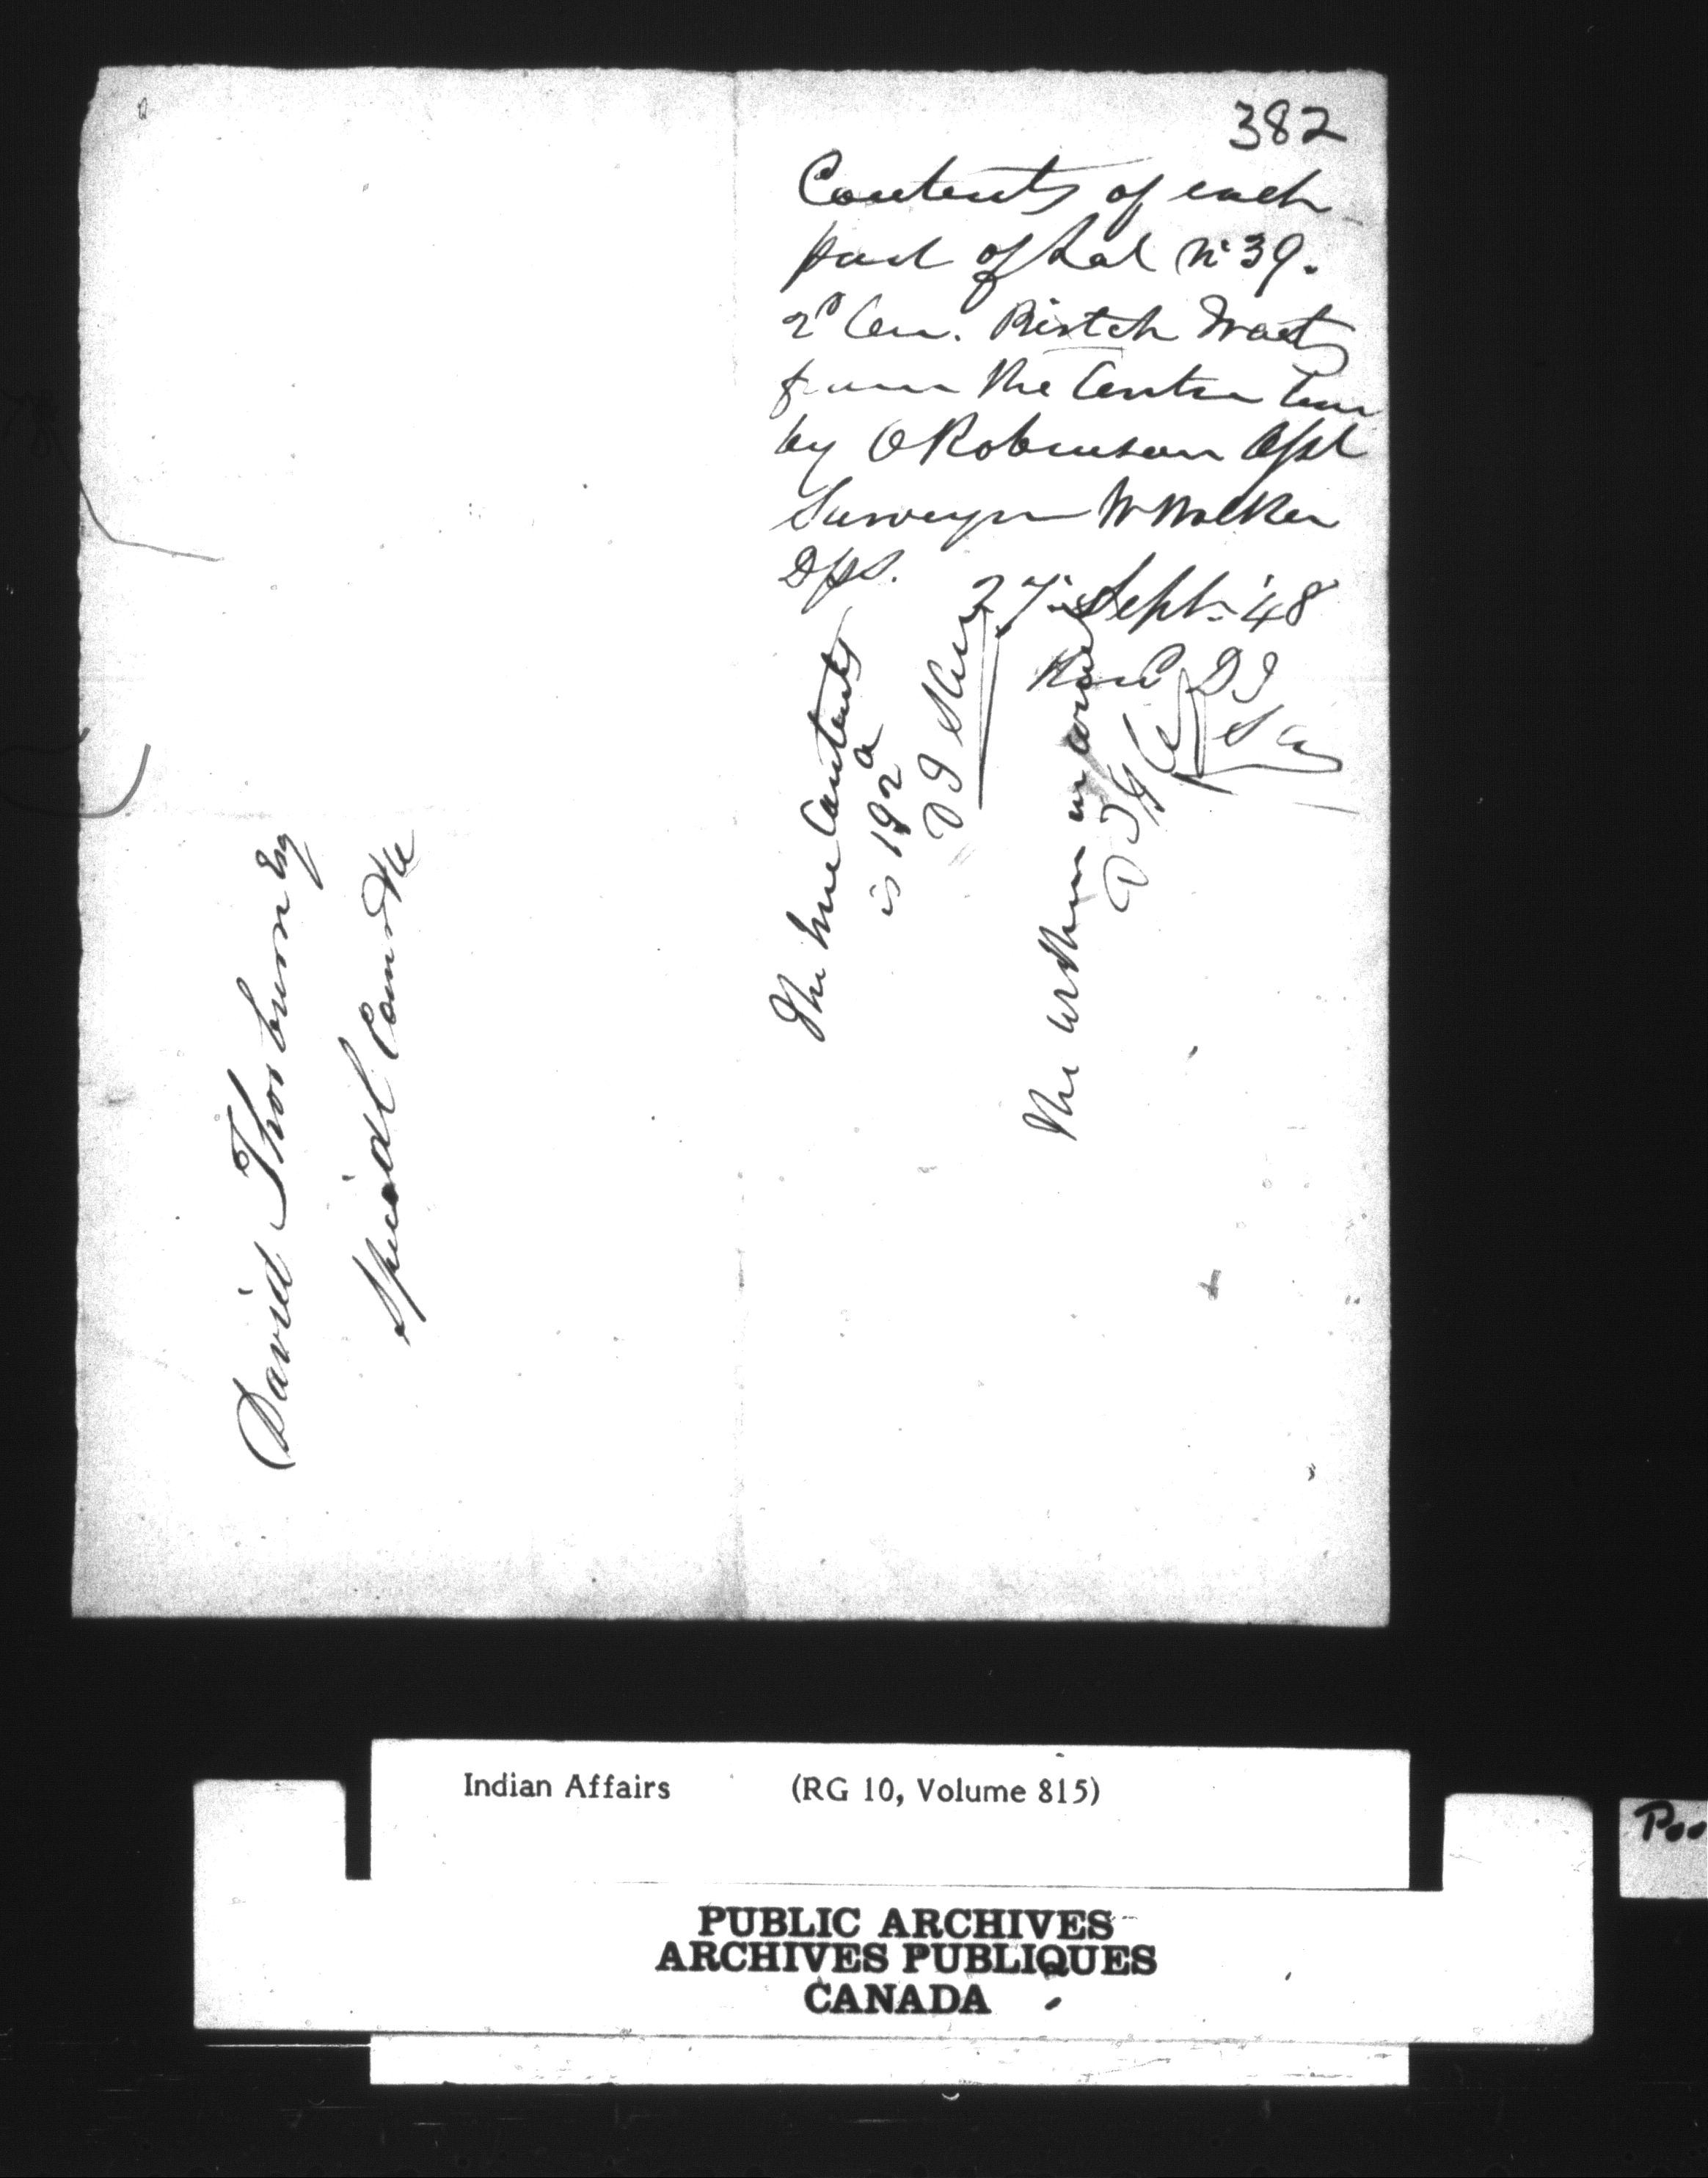 382
Contents of each
part of Lot No 39.
2d Con. Birtch Tract
from the Centre
by O Robinson
Surveyor W Walker
DPS.
27 Sept. '48
Recd DT
The true Contents
is 192 a
DT
The within
DT
David Thorburn Esq
Special Comr
Indian Affairs (RG 10, Volume 815)
PUBLIC ARCHIVES
ARCHIVES PUBLIQUES
CANADA